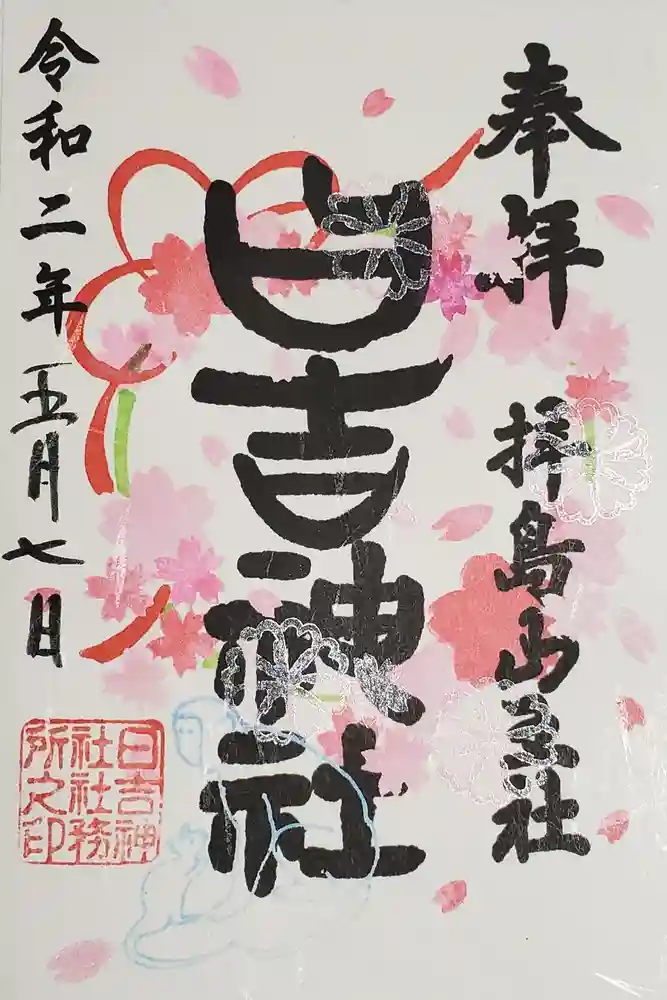 奉拝
拝島山王社
日吉神社
令和二年五月七日
日吉神
社社務
所之印